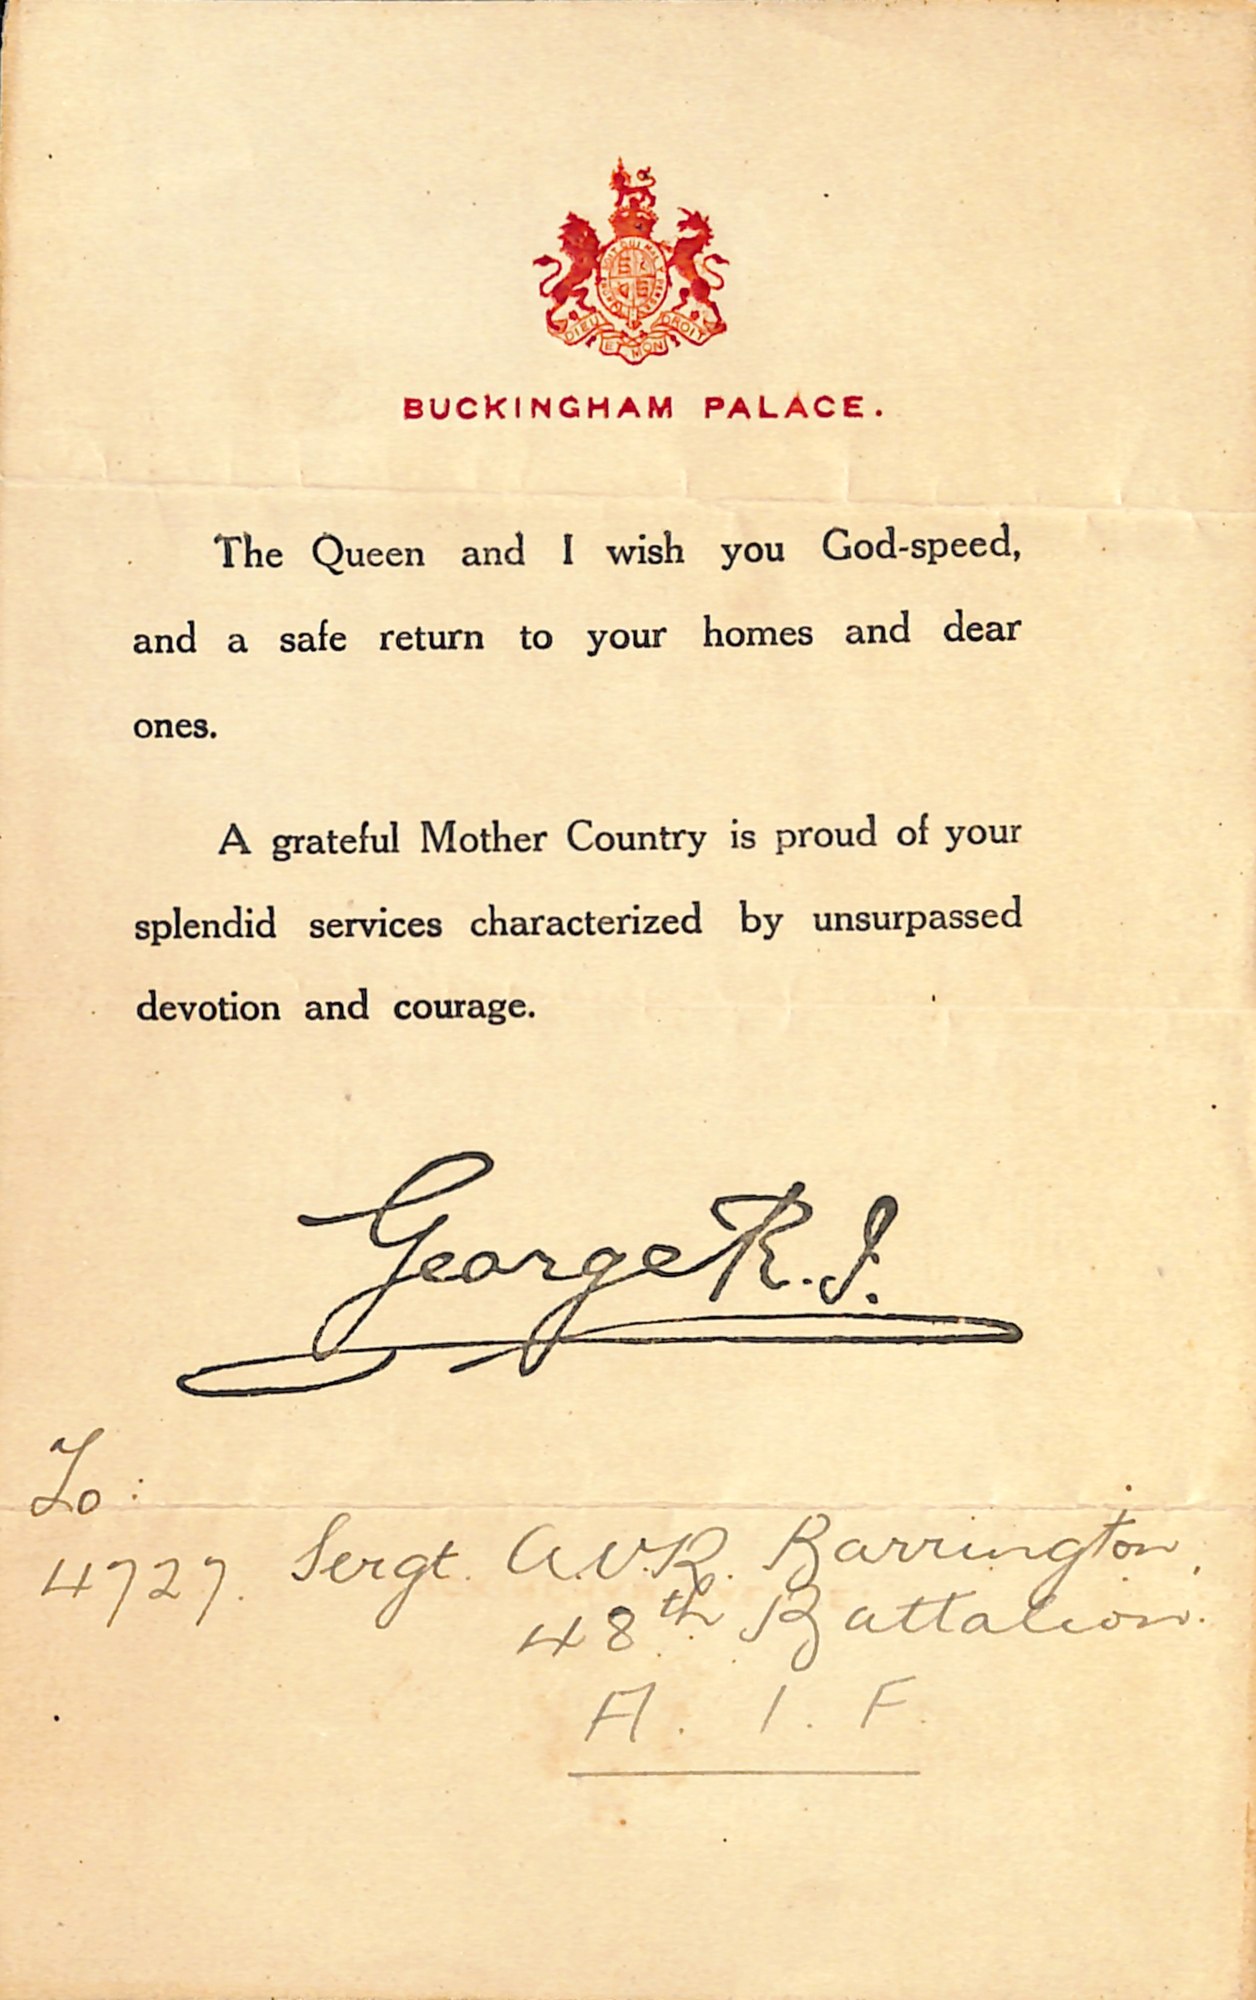 HONI SOIT QUI MAL Y PENSE
DIEU ET MON DROIT
BUCKINGHAM PALACE.
The Queen and I wish you God-speed,
and a safe return to your homes and dear
ones.
A grateful Mother Country is proud of your
splendid services characterized by unsurpassed
devotion and courage.
George R.I.
To:
4727. Sergt. A.V.R. Barrington,
48th Battalion.
A. I. F.